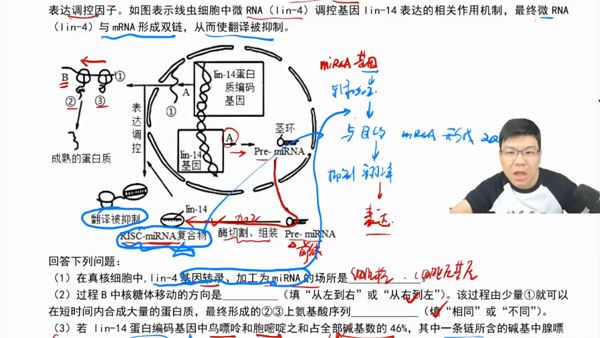 表达调控因子。如图表示线虫细胞中微 RNA（lin-4）调控基因 lin-14 表达的相关作用机制，最终微 RNA
（lin-4）与 mRNA 形成双链，从而使翻译被抑制。
B
①
②
③
A
①
表达调控
成熟的蛋白质
lin-14蛋白质编码基因
lin-14基因
A
茎环
Pre-miRNA
miRNA基因
与目的 mRNA 形成
抑制翻译
表达
翻译被抑制
lin-14
RISC-miRNA复合物
酶切割、组装
Pre-miRNA
回答下列问题：
（1）在真核细胞中，lin-4 基因转录、加工为 miRNA 的场所是 细胞核、细胞质基质
（2）过程 B 中核糖体移动的方向是________（填“从左到右”或“从右到左”）。该过程由少量①就可以
在短时间内合成大量的蛋白质，最终形成的②③上氨基酸序列________（填“相同”或“不同”）。
（3）若 lin-14 蛋白编码基因中鸟嘌呤和胞嘧啶之和占全部碱基数的 46%，其中一条链所含的碱基中腺嘌